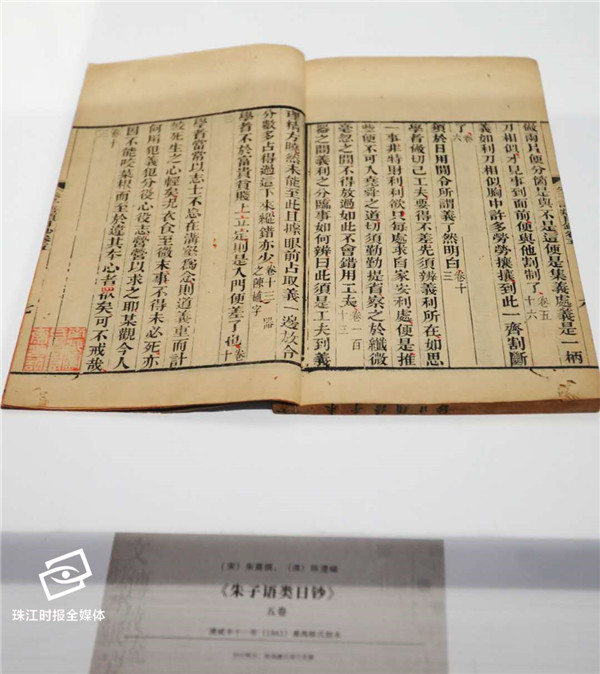 做兩片便分箇是與不是這便是集義處義是一柄
刀相似才見事到面前便與他割制了卷五十六
義如利刀相似胸中許多勞勞攘攘到此一齊割斷
了卷六
須於日用間令所謂義了然明白卷十三
學者做切己工夫要得不差先須辨義利所在如思
一事非特財利利欲只每處求自家安利處便是推
些便不可入堯舜之道切須勤勤提省察之於纖微
毫忽之間不得放過如此不會錯用工夫卷一百十三
器之問義利之分臨事如何辨曰此須是工夫到義
理精方曉然未能至此且據眼前占取義一邊放令
分數多占得過這下來縱錯亦少卷十三器之陳埴字
學者不於富貴貧賤上立定則是入門便差了也卷十三
學者當常以志士不忘在溝壑為念則道義重而計
較死生之心輕矣況衣食至微末事不得未必死亦
何用犯義犯分役心役志營營以求之耶某觀今人
因不能咬菜根而至於違其本心者眾矣可不戒哉
卷十三
《朱子语类日钞》
五卷
珠江时报全媒体